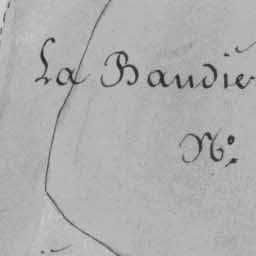 La Baudie
N°.